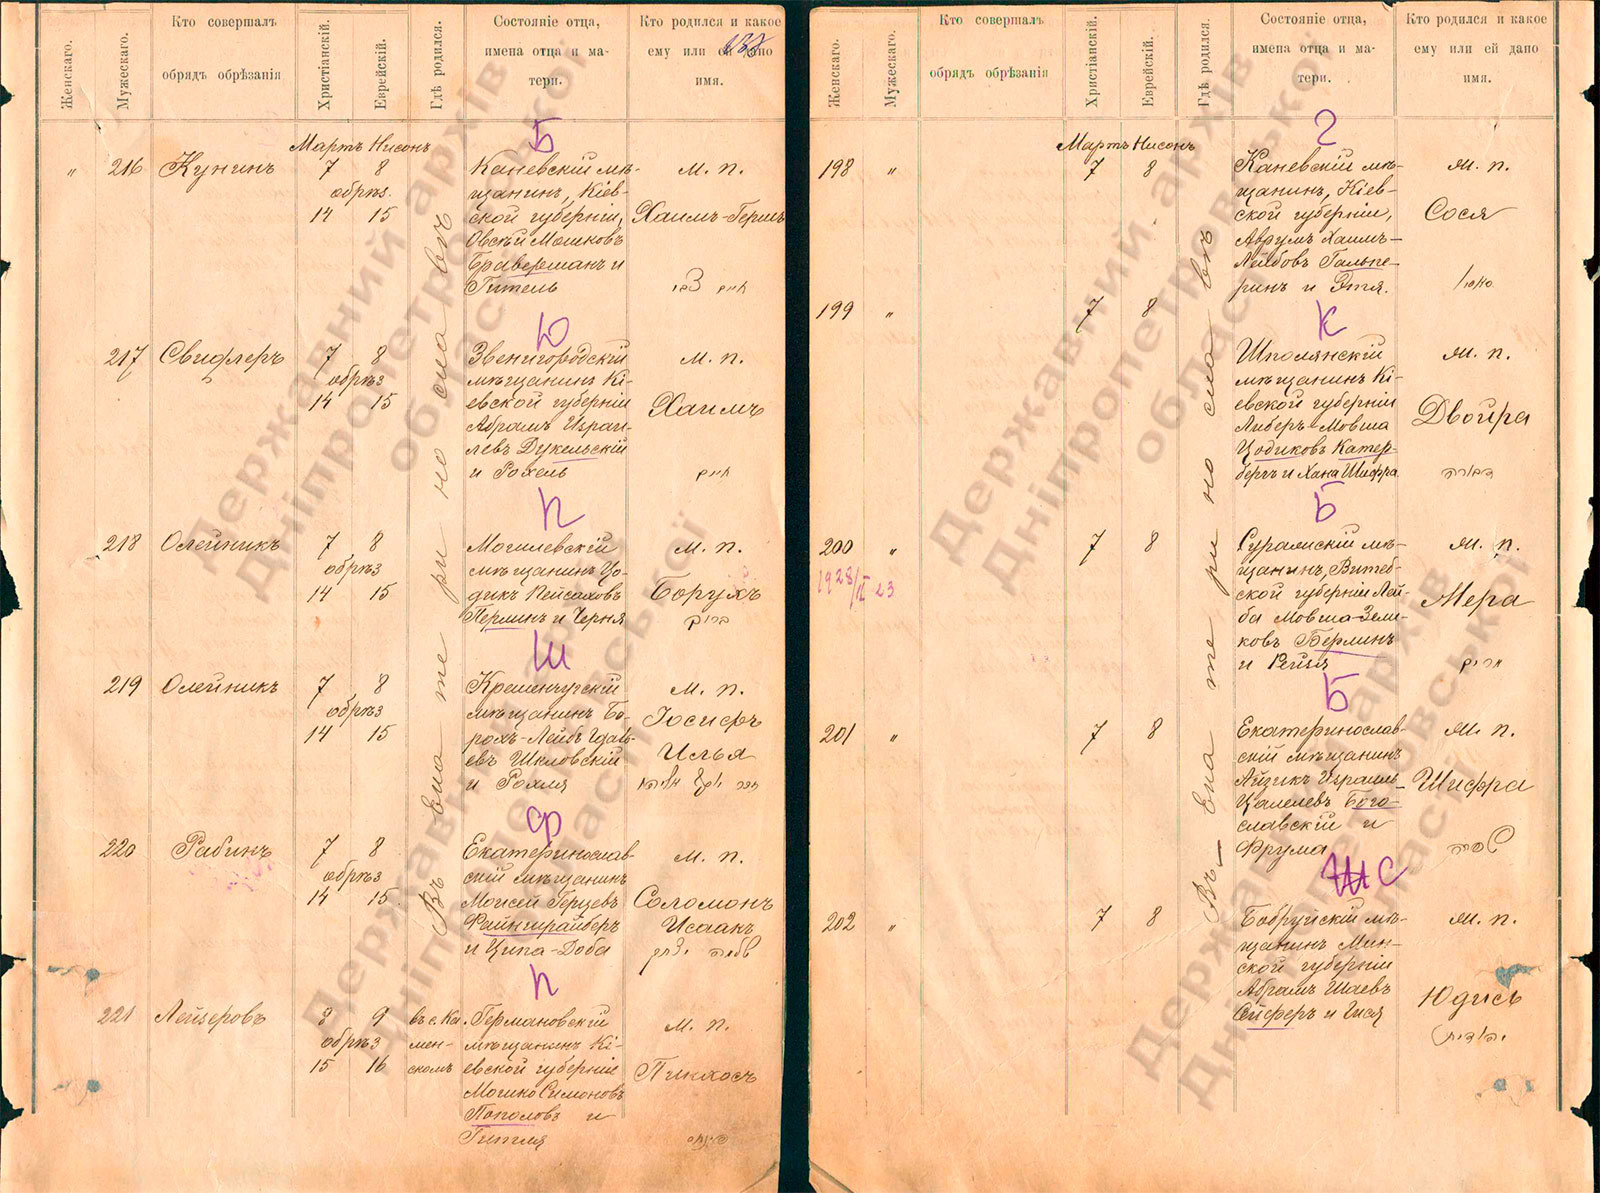 Женскаго.
Мужескаго.
Кто совершалъ
обрядъ обрѣзанія
Христіанскій.
Еврейскій.
Гдѣ родился.
Состояніе отца,
имена отца и ма-
тери.
Кто родился и какое
ему или ей дано
имя.
Мартъ Нисонъ
Въ Екатеринославѣ
Б
" 216 Кунинъ 7 8
обрѣз.
14 15
Каневскій мѣ-
щанинъ, Кіев-
ской губерніи,
Овсѣй Мошковъ
Браверманъ и
Гитель
м. п.
Хаимъ-Гершъ
Ю
217 Свифлеръ 7 8
обрѣз
14 15
Звенигородскій
мѣщанинъ Кі-
евской губерніи
Абрамъ Израи-
левъ Дукельскій
и Рохель
м. п.
Хаимъ
חיים
П
218 Олейникъ 7 8
обрѣз
14 15
Могилевскій
мѣщанинъ Цо-
дикъ Пейсаховъ
Перлинъ и Черня
м. п.
Борухъ
ברוך
Ш
219 Олейникъ 7 8
обрѣз
14 15
Кременчугскій
мѣщанинъ Бо-
рохъ-Лейбъ Гдаль-
евъ Шкловскій
и Рохля
м. п.
Іосифъ
Илья
Ф
220 Рабинъ 7 8
обрѣз
14 15
Екатеринослав-
скій мѣщанинъ
Моисей Герцевъ
Файнштрайберъ
и Ципа-Доба
м. п.
Соломонъ
Исаакъ
שלמה יצחק
П
221 Лейзеровъ 8 9
обрѣз
15 16
въ с. Ка-
мен-
скомъ
Германовскій
мѣщанинъ Кі-
евской губерніи
Мошко Симоновъ
Пополовъ и
Гитля
м. п.
Пинхосъ
Женскаго.
Мужескаго.
Кто совершалъ
обрядъ обрѣзанія
Христіанскій.
Еврейскій.
Гдѣ родился.
Состояніе отца,
имена отца и ма-
тери.
Кто родился и какое
ему или ей дано
имя.
Мартъ Нисонъ
Въ Екатеринославѣ
Г
198 " 7 8
Каневскій мѣ-
щанинъ, Кіев-
ской губерніи,
Аврумъ Хаимъ-
Лейбовъ Гальпе-
ринъ и Этя.
м. п.
Сося
199 " 7 8
К
Шполянскій
мѣщанинъ Кі-
евской губерніи
Либеръ-Мовша
Цодиковъ Катер-
бергъ и Хана Шифра
м. п.
Двойра
דבורה
Б
200 " 7 8
1928/II 23
Суражскій мѣ-
щанинъ, Витеб-
ской губерніи Лей-
ба Мовша-Зели-
ковъ Берлинъ
и Рейзя
м. п.
Мера
מרים
Б
201 " 7 8
Екатеринослав-
скій мѣщанинъ
Айзикъ Израиль-
Цалелевъ Бого-
славскій и
Фрума
м. п.
Шифра
שפרה
С
202 " 7 8
Бобруйскій мѣ-
щанинъ Мин-
ской губерніи
Абрамъ Шаевъ
Сейферъ и Гися
м. п.
Юдись
יהודית
Державний архів
Дніпропетровської
області
Державний архів
Дніпропетровської
області
Державний архів
Дніпропетровської
області
Державний архів
Дніпропетровської
області